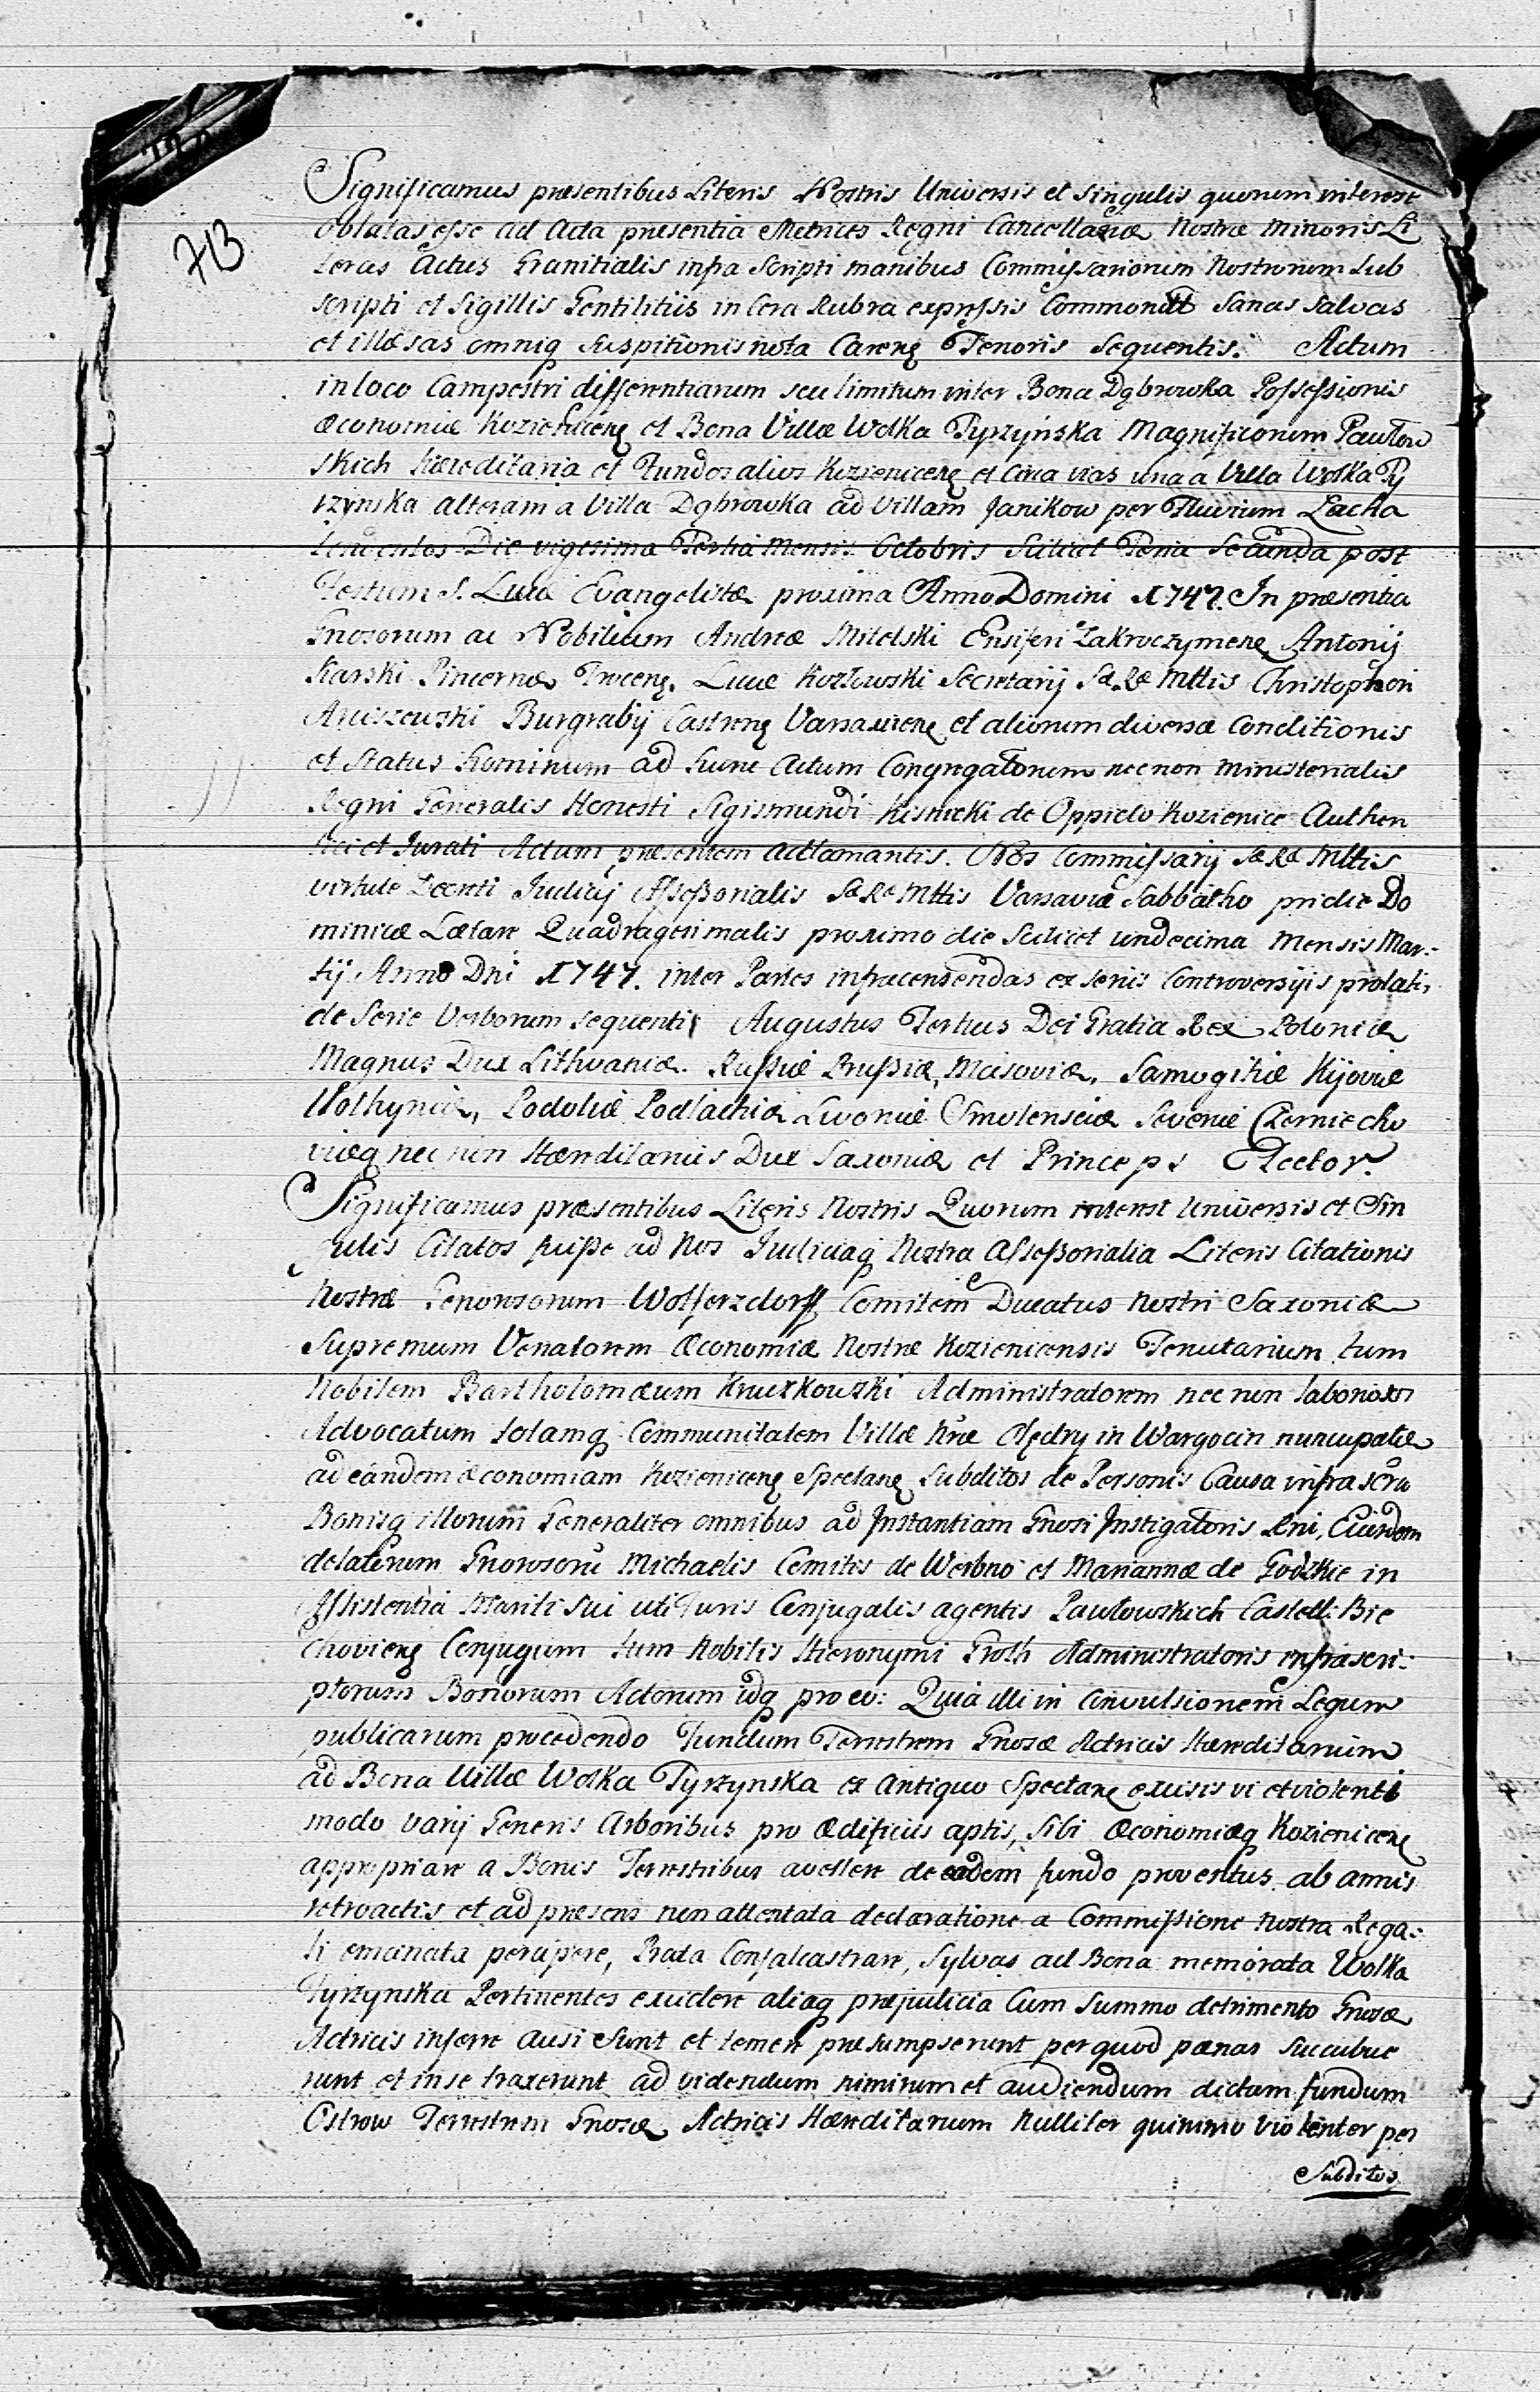 713
Significamus præsentibus Literis Nostris Universis et singulis quorum interest
oblatas esse ad Acta præsentia Metrices Regni Cancellariæ Nostræ Minoris Li
teras Actus Granitialis infra Scripti manibus Commissariorum Nostrorum Sub
scripti et Sigillis Gentilitiis in Cera Rubra expressis Communit Sanas salvas
et illæsas omniq suspitionis nota Careng Tenoris sequentis. Actum
in loco Campestri differentiarum seu limitum inter Bona Dąbrowka Possessionis
œconomiæ Kozieniceng et Bona Villæ Wolka Tyrzyńska Magnificorum Pawłow
skich hæreditaria et Fundos alios Kozieniceng et Circa vias una a Villa Wolka Ty
rzynska alteram a Villa Dąbrowka ad Villam Janikow per Fluvium Łacha
tendentes Die vigesima Tertia Mensis Octobris Scilicet Feria Secunda post
Festum S. Lucæ Evangelistæ proxima Anno Domini 1747. In præsentia
Gnosorum ac Nobilium Andreæ Mitelski Ensiferi Zakroczymeng Antonij
Karski Pincernæ Troceng. Lucæ Kozłowski Secretarij Sæ Ræ Mttis Christophori
Aniszewski Burgrabij Castreng Varsavieng et aliorum diversæ Conditionis
et Status hominum ad hunc Actum Congregatorum necnon Ministerialis
Regni Generalis Honesti Sigismundi Kisnicki de Oppido Kozienice Authen
tici et Jurati Actum præsentem acclamantis. Nos Commissarij Sæ Ræ Mttis
virtute Decreti Judicij Assessorialis Sæ Ræ Mttis Varsaviæ Sabbatho pridie Do
minicæ Lætare Quadragesimalis proximo die Scilicet undecima Mensis Mar-
tij Anno Dni 1747. inter Partes infracensendas ex seriis Controversijs prolati
de Serie Verborum sequenti Augustus Tertius Dei Gratia Rex Poloniæ
Magnus Dux Lithvaniæ. Russiæ Prussiæ, Masoviæ, Samogitiæ Kijoviæ
Wolhyniæ, Podoliæ Podlachiæ Livoniæ Smolensciæ Severiæ Czerniecho
viæq necnon Hæreditarius Dux Saxoniæ et Princeps Elector.
Significamus præsentibus Literis Nostris Quorum interest Universis et Sin
gulis Citatos fuisse ad Nos Judiciaq Nostra Assessorialia Literis Citationis
Nostræ Generosorum Wolfferzdorff Comitem Ducatus Nostri Saxoniæ
Supremum Venatorem œconomiæ Nostræ Kozienicensis Tenutarium tum
Nobilem Bartholomæum Kruszkowski Administratorem necnon laboriosos
Advocatum totamq Communitatem Villæ Nræ Olędry in Wargocin nuncupatæ
ad eandem œconomiam Kozieniceng Spectang Subditos de Personis Causa infrascra
Bonisq illorum Generaliter omnibus ad Instantiam Gnosi Instigatoris Rni, Eiusdem
delatorum Gnorosorū Michaelis Comitis de Werbno et Mariannæ de Godzkie in
Assistentia Mariti Sui uti Juris Conjugalis agentis Pawłowskich Castell: Bie
choviens Conjugum tum Nobilis Hieronymi Groth Administratoris infrascri-
ptorum Bonorum Actorum idq pro eo: Quia illi in Convulsionem Legum
publicarum procedendo Fundum Terrestrem Gnosæ Actricis Hæreditarium
ad Bona Villæ Wolka Tyrzynska ex Antiquo Spectang exisis vi et violenti
modo varij Generis Arboribus pro ædificiis aptis, Sibi œconomiæq Kozieniceng
appropriare a Bonis Terrestribus avellere de eodem fundo proventus ab annis
retroactis et ad præsens non attentata declaratione a Commissione Nostra Rega-
li emanata percipere, Prata Confalcastrare, Sylvas ad Bona memorata Wolka
Tyrzynska Pertinentes excidere aliaq præjudicia Cum Summo detrimento Gnosæ
Actricis inferre Ausi Sunt et temere præsumpserunt per quod pænas Succubue
runt et in se traxerunt ad videndum nimirum et audiendum dictam fundum
Ostrow Terrestrem Gnosæ Actricis Hæreditarium Nulliter quinimo violenter per
Subditos